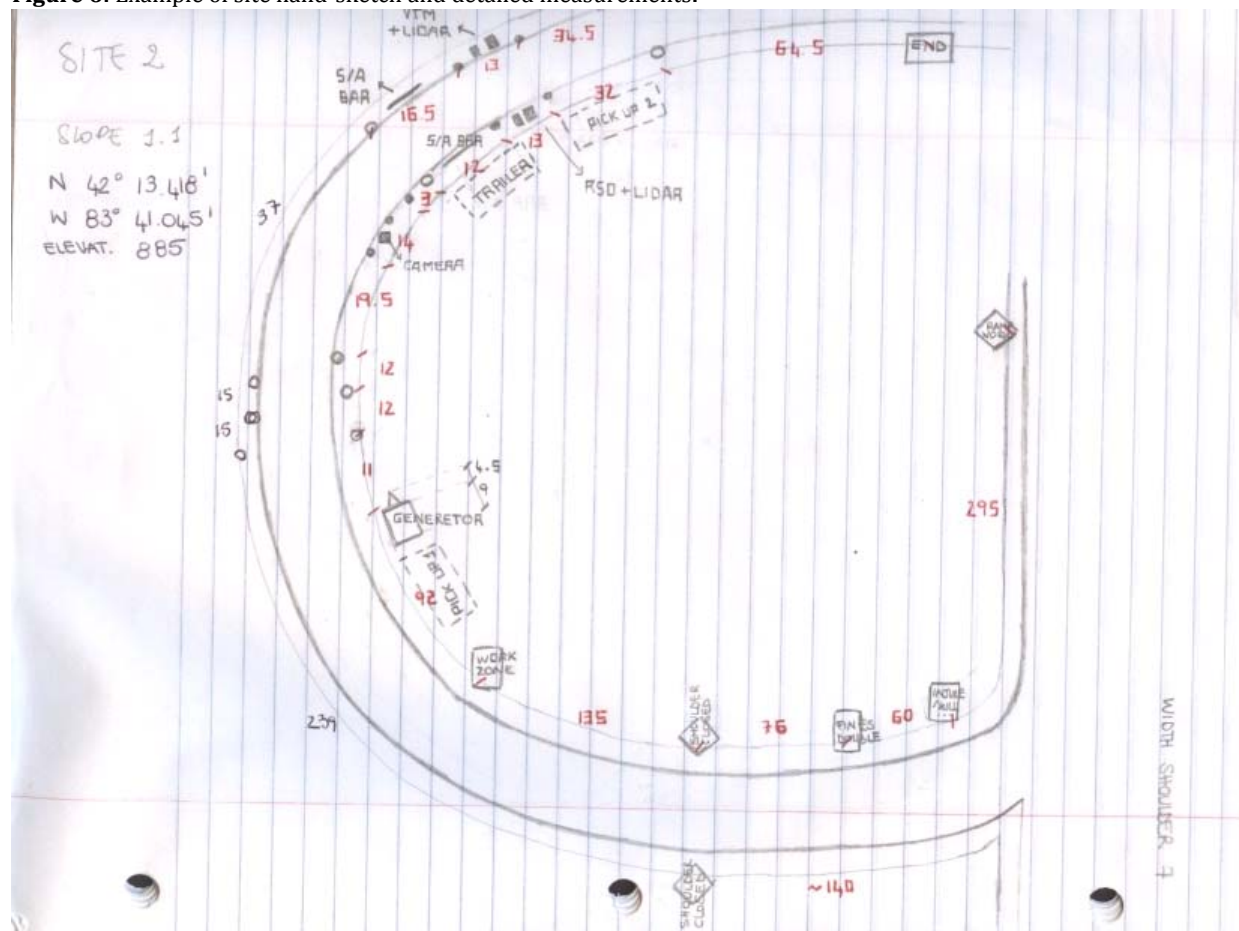 Figure 6. Example of site hand-sketch and detailed measurements.
SITE 2
SLOPE 1.1
N 42° 13.418'
W 83° 41.045'
ELEVAT. 885
VTM
+ LIDAR
S/A
BAR
34.5
13
16.5
64.5
END
32
PICK UP 2
13
S/A BAR
12
TRAILER
RSD + LIDAR
3
14
CAMERA
19.5
37
12
12
15
15
11
4.5
9
GENERETOR
PICK UP 1
92
WORK
ZONE
239
135
SHOULDER
CLOSED
76
FINES
DOUBLE
60
295
WIDTH SHOULDER 7
SHOULDER
CLOSED
~140